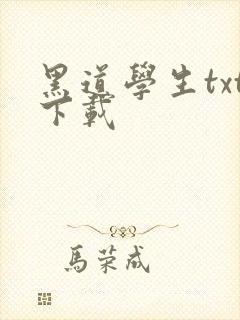 黑道學生txt
下載
馬荣成